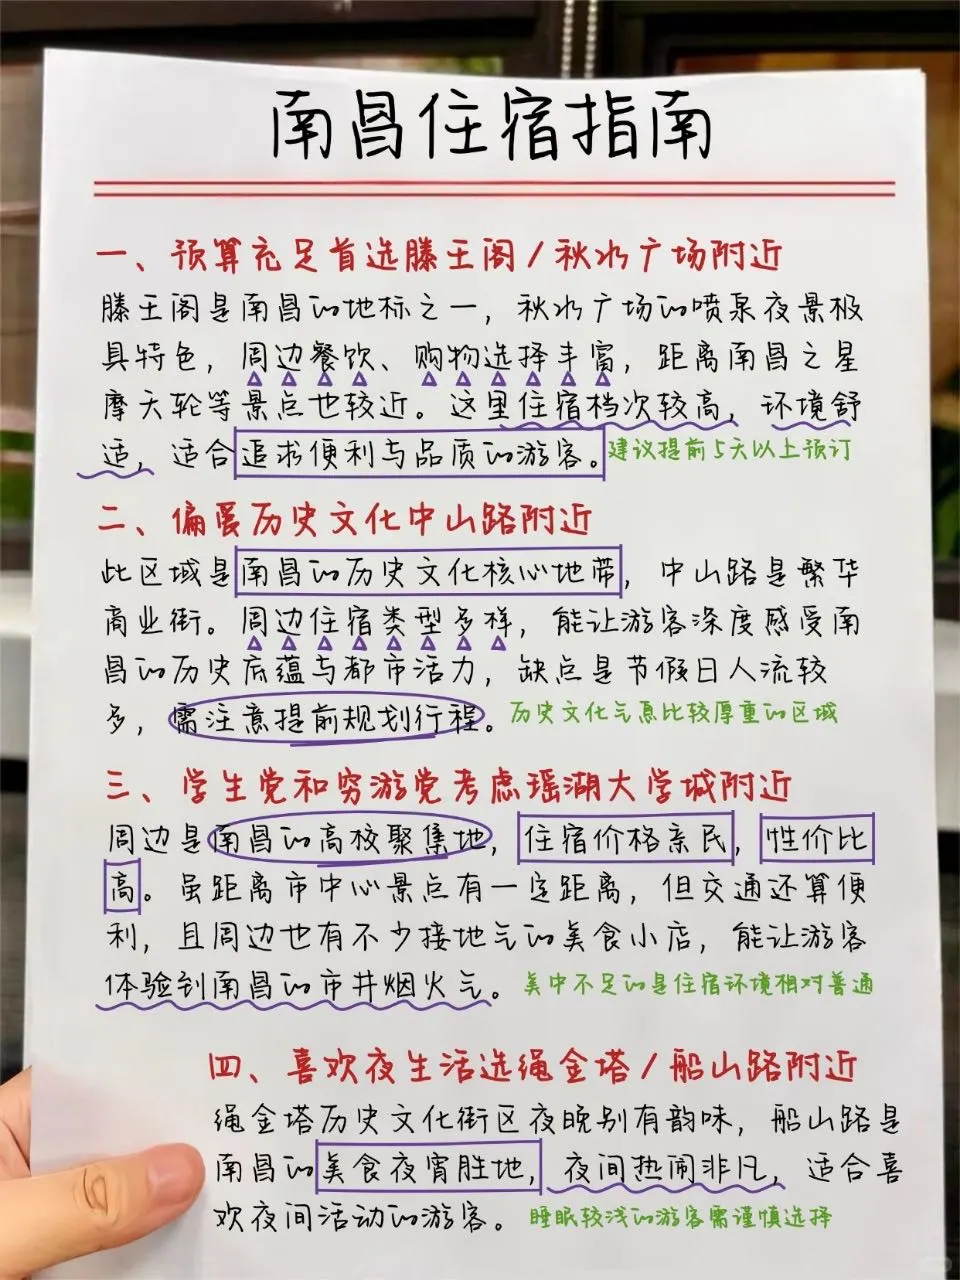 南昌住宿指南
一、预算充足首选滕王阁/秋水广场附近
滕王阁是南昌的地标之一，秋水广场的喷泉夜景极
具特色，周边餐饮、购物选择丰富，距离南昌之星
摩天轮等景点也较近。这里住宿档次较高，环境舒
适，适合追求便利与品质的游客。建议提前5天以上预订
二、偏爱历史文化中山路附近
此区域是南昌的历史文化核心地带，中山路是繁华
商业街。周边住宿类型多样，能让游客深度感受南
昌的历史底蕴与都市活力，缺点是节假日人流较
多，需注意提前规划行程。历史文化气息比较厚重的区域
三、学生党和穷游党考虑瑶湖大学城附近
周边是南昌的高校聚集地，住宿价格亲民，性价比
高。虽距离市中心景点有一定距离，但交通还算便
利，且周边也有不少接地气的美食小店，能让游客
体验到南昌的市井烟火气。美中不足的是住宿环境相对普通
四、喜欢夜生活选绳金塔/船山路附近
绳金塔历史文化街区夜晚别有韵味，船山路是
南昌的美食夜宵胜地，夜间热闹非凡，适合喜
欢夜间活动的游客。睡眠较浅的游客需谨慎选择